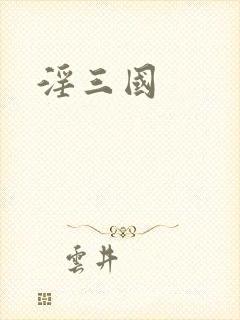 淫三國
雲井